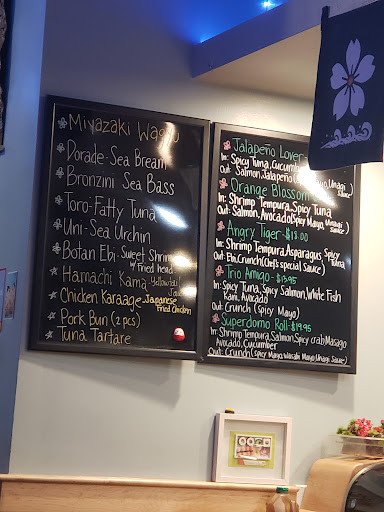 Miyazaki Wagyu
Dorade-Sea Bream
Bronzini Sea Bass
Toro-Fatty Tuna
Uni-Sea Urchin
Botan Ebi-Sweet Shrimp
w/ Fried head
Hamachi Kama-Yellowtail
Chicken Karaage-Japanese
Fried Chicken
Pork Bun (2 pcs)
Tuna Tartare
Jalapeño Lover
In: Spicy Tuna, Cucumber
Out: Salmon, Jalapeño Mayo, Unagi
Sauce)
Orange Blossom
In: Shrimp Tempura, Spicy Tuna
Out: Salmon, Avocado (Spicy Mayo, Unagi
Sauce)
Angry Tiger-$18.00
In: Shrimp Tempura, Asparagus Spicy
Tuna
Out: Ebi, Crunch (Chef's special Sauce)
Trio Amigo-$13.95
In: Spicy Tuna, Spicy Salmon, White Fish
Kani, Avocado
Out: Crunch (Spicy Mayo)
Superdomo Roll-$19.95
In: Shrimp Tempura, Salmon, Spicy crab, Masago
Avocado, Cucumber
Out: Crunch (Spicy Mayo, Wasabi Mayo, Unagi Sauce)